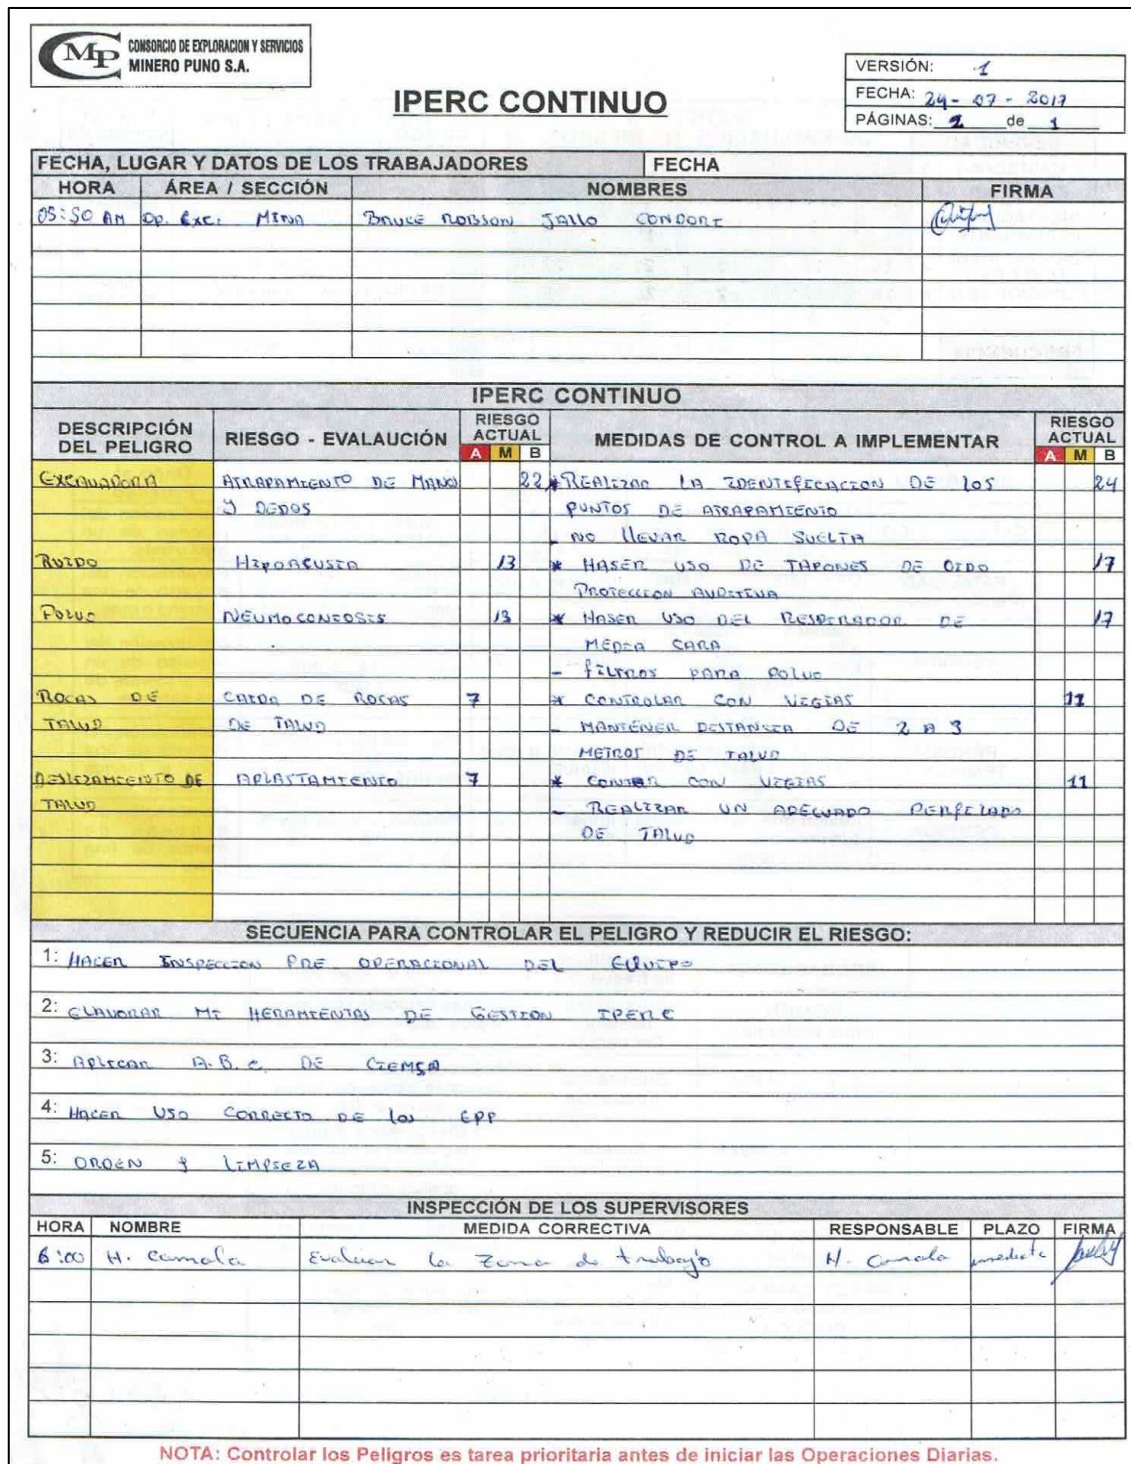 CMP CONSORCIO DE EXPLORACION Y SERVICIOS
MINERO PUNO S.A.
IPERC CONTINUO
VERSIÓN: 1
FECHA: 24-07-2017
PÁGINAS: 1 de 1
FECHA, LUGAR Y DATOS DE LOS TRABAJADORES FECHA
HORA ÁREA / SECCIÓN NOMBRES FIRMA
05:50 AM Op. Exc. MINA BRUCE ROBSSON JALLO CONDORI
IPERC CONTINUO
DESCRIPCIÓN DEL PELIGRO RIESGO - EVALAUCIÓN RIESGO ACTUAL A M B MEDIDAS DE CONTROL A IMPLEMENTAR RIESGO ACTUAL A M B
EXCAVADORA ATRAPAMIENTO DE MANO 22 * REALIZAR LA IDENTIFICACION DE LOS 24
Y DEDOS PUNTOS DE ATRAPAMIENTO
- NO LLEVAR ROPA SUELTA
RUIDO HIPOACUSIA 13 * HASER USO DE TAPONES DE OIDO 17
PROTECCION AUDITIVA
POLVO NEUMOCONIOSIS 13 * HASER USO DEL RESPIRADOR DE 17
MEDIA CARA
- FILTROS PARA POLVO
ROCAS DE CAIDA DE ROCAS 7 * CONTROLAR CON VIGIAS 11
TALUD DE TALUD - MANTENER DISTANCIA DE 2 A 3
METROS DE TALUD
DESLIZAMIENTO DE APLASTAMIENTO 7 * CONTAR CON VIGIAS 11
TALUD - REALIZAR UN ADECUADO PERFILADO
DE TALUD
SECUENCIA PARA CONTROLAR EL PELIGRO Y REDUCIR EL RIESGO:
1: HACER INSPECCION PRE OPERACIONAL DEL EQUIPO
2: ELAVORAR MI HERAMIENTAS DE GESTION IPERC
3: APLICAR A.B.C. DE CIEMSA
4: HACER USO CORRECTO DE LOS EPP
5: ORDEN Y LIMPIEZA
INSPECCIÓN DE LOS SUPERVISORES
HORA NOMBRE MEDIDA CORRECTIVA RESPONSABLE PLAZO FIRMA
6:00 H. Camala Evaluar la zona de trabajo H. Camala inmediata
NOTA: Controlar los Peligros es tarea prioritaria antes de iniciar las Operaciones Diarias.